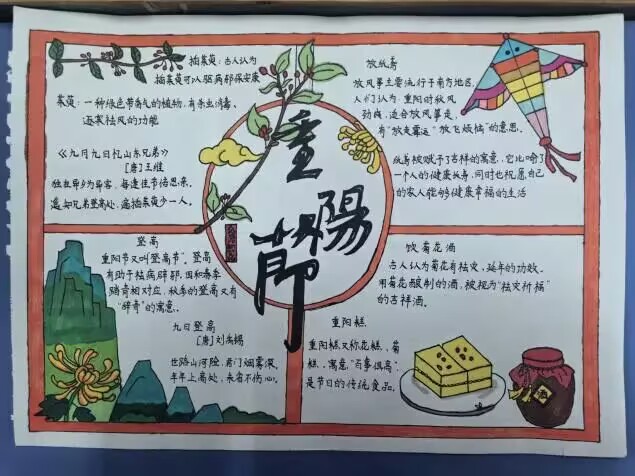 插茱萸：古人认为
插茱萸可以驱病邪保安康
茱萸：一种绿色带香气的植物，有杀虫消毒、
逐寒祛风的功能
《九月九日忆山东兄弟》
[唐]王维
独在异乡为异客，每逢佳节倍思亲。
遥知兄弟登高处，遍插茱萸少一人。
放纸鸢
放风筝主要流行于南方地区，
人们认为：重阳时秋风
劲爽，适合放风筝走，
有“放走霉运”“放飞烦恼”的意思。
纸鸢被赋予了吉祥的寓意，它比喻了
一个人的健康长寿，同时也祝愿自己
的家人能够健康幸福的生活
重
陽
節
登高
重阳节又叫登高节。登高
有助于祛病辟邪，因和春季
踏青相对应，秋季的登高又有
“辞青”的寓意。
九日登高
[唐]刘禹锡
世路山河险，君门烟雾深。
年年上高处，未省不伤心。
饮菊花酒
古人认为菊花有祛灾、延年的功效。
用菊花酿制的酒，被视为“祛灾祈福”
的吉祥酒。
重阳糕
重阳糕又称花糕、菊
糕，寓意“百事俱高”
是节日的传统食品。
酒